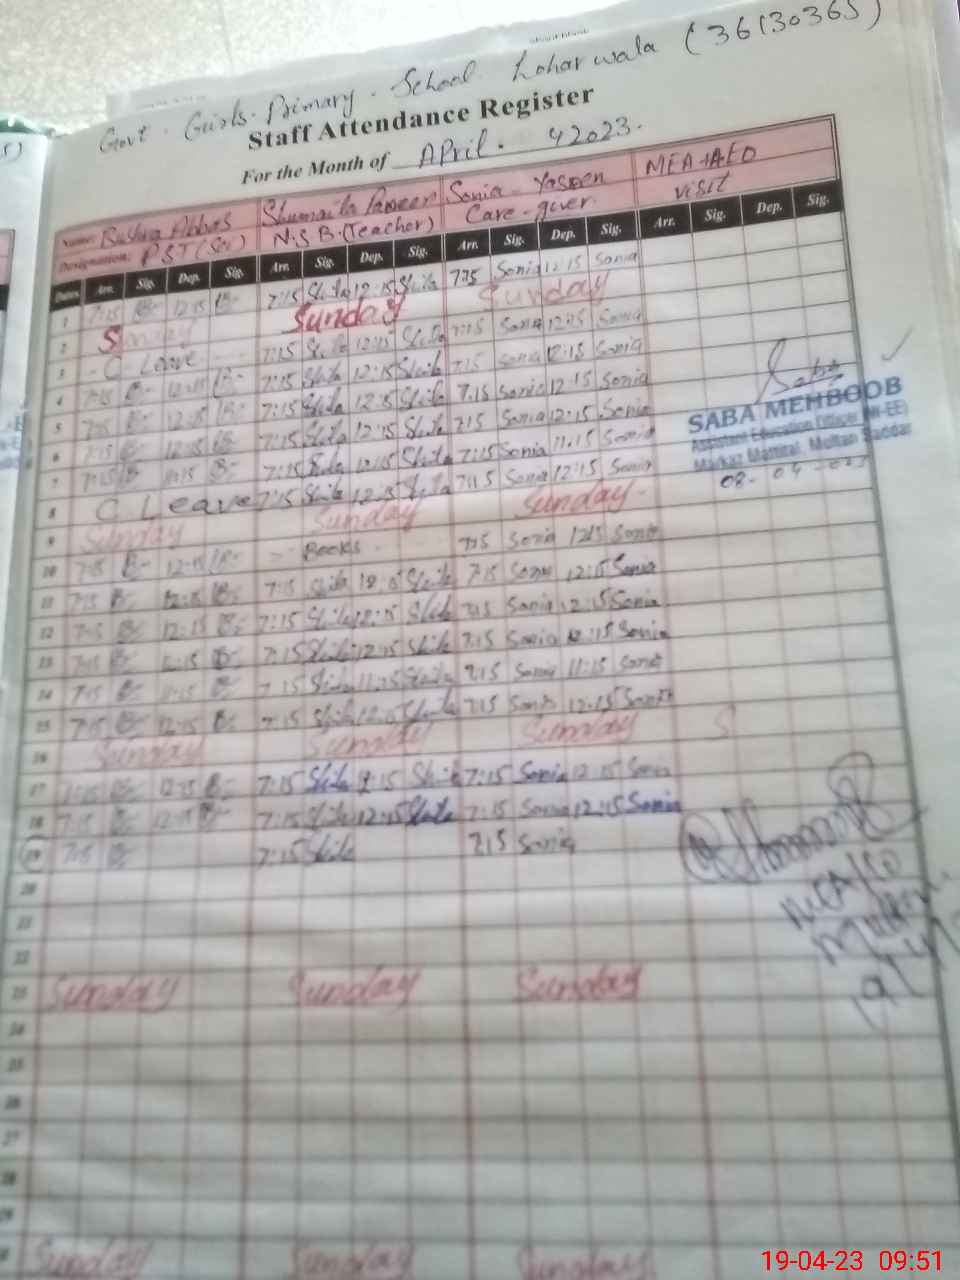 Govt. Girls. Primary. School Loharwala (36130365)
Staff Attendance Register
For the Month of April. 42023.
Name: Bushra Abbas Shumaila Sonia Yaseen MEA+AEO
Designation: PST (Sci) N.S.B.(Teacher) Care-giver. visit
Dates Arr. Sig. Dep. Sig. Arr. Sig. Dep. Sig. Arr. Sig. Dep. Sig. Arr. Sig. Dep. Sig.
1 7:15 B- 12:15 B- 7:15 Shila 12:15 Shila 7:15 Sonia 12:15 Sonia
2 Sunday Sunday Sunday
3 C-Leave 7:15 Shila 12:15 Shila 7:15 Sonia 12:15 Sonia
4 7:15 B- 12:15 B- 7:15 Shila 12:15 Shila 7:15 Sonia 12:15 Sonia
5 7:15 B- 12:15 B- 7:15 Shila 12:15 Shila 7.15 Sonia 12:15 Sonia
6 7:15 B- 12:15 B- 7:15 Shila 12:15 Shila 7:15 Sonia 12:15 Sonia
7 7:15 B- 11:15 B- 7:15 Shila Shila 7:15 Sonia 11:15 Sonia
8 C Leave 7:15 Shila 12:15 Shila 7:15 Sonia 12:15 Sonia
9 Sunday Sunday Sunday
10 7:15 B- 12:15 B- Books 7:15 Sonia 12:15 Sonia
11 7:15 B- 12:15 B- 7:15 Shila 12:15 Shila 7:15 Sonia 12:15 Sonia
12 7:15 B- 12:15 B- 7:15 Shila 12:15 Shila 7:15 Sonia 12:15 Sonia
13 7:15 B- 12:15 B- 7:15 Shila 12:15 Shila 7:15 Sonia 12:15 Sonia
14 7:15 B- 11:15 B- 7:15 Shila 11:15 Shila 7:15 Sonia 11:15 Sonia
15 7:15 B- 12:15 B- 7:15 Shila 12:15 Shila 7:15 Sonia 12:15 Sonia
16 Sunday Sunday Sunday S
17 7:15 B- 12:15 B- 7:15 Shila 12:15 Shila 7:15 Sonia 12:15 Sonia
18 7:15 B- 12:15 B- 7:15 Shila 12:15 Shila 7:15 Sonia 12:15 Sonia
19 7:15 B- 7:15 Shila 7:15 Sonia
20
21
22
23 Sunday Sunday Sunday
24
25
26
27
28
29
30 Sunday Sunday Sunday
Saba
SABA MEHBOOB
Assistant Education Officer (W-EE)
Markaz Mattital, Multan Saddar
08-04-2023
MEA
19-04-23 09:51